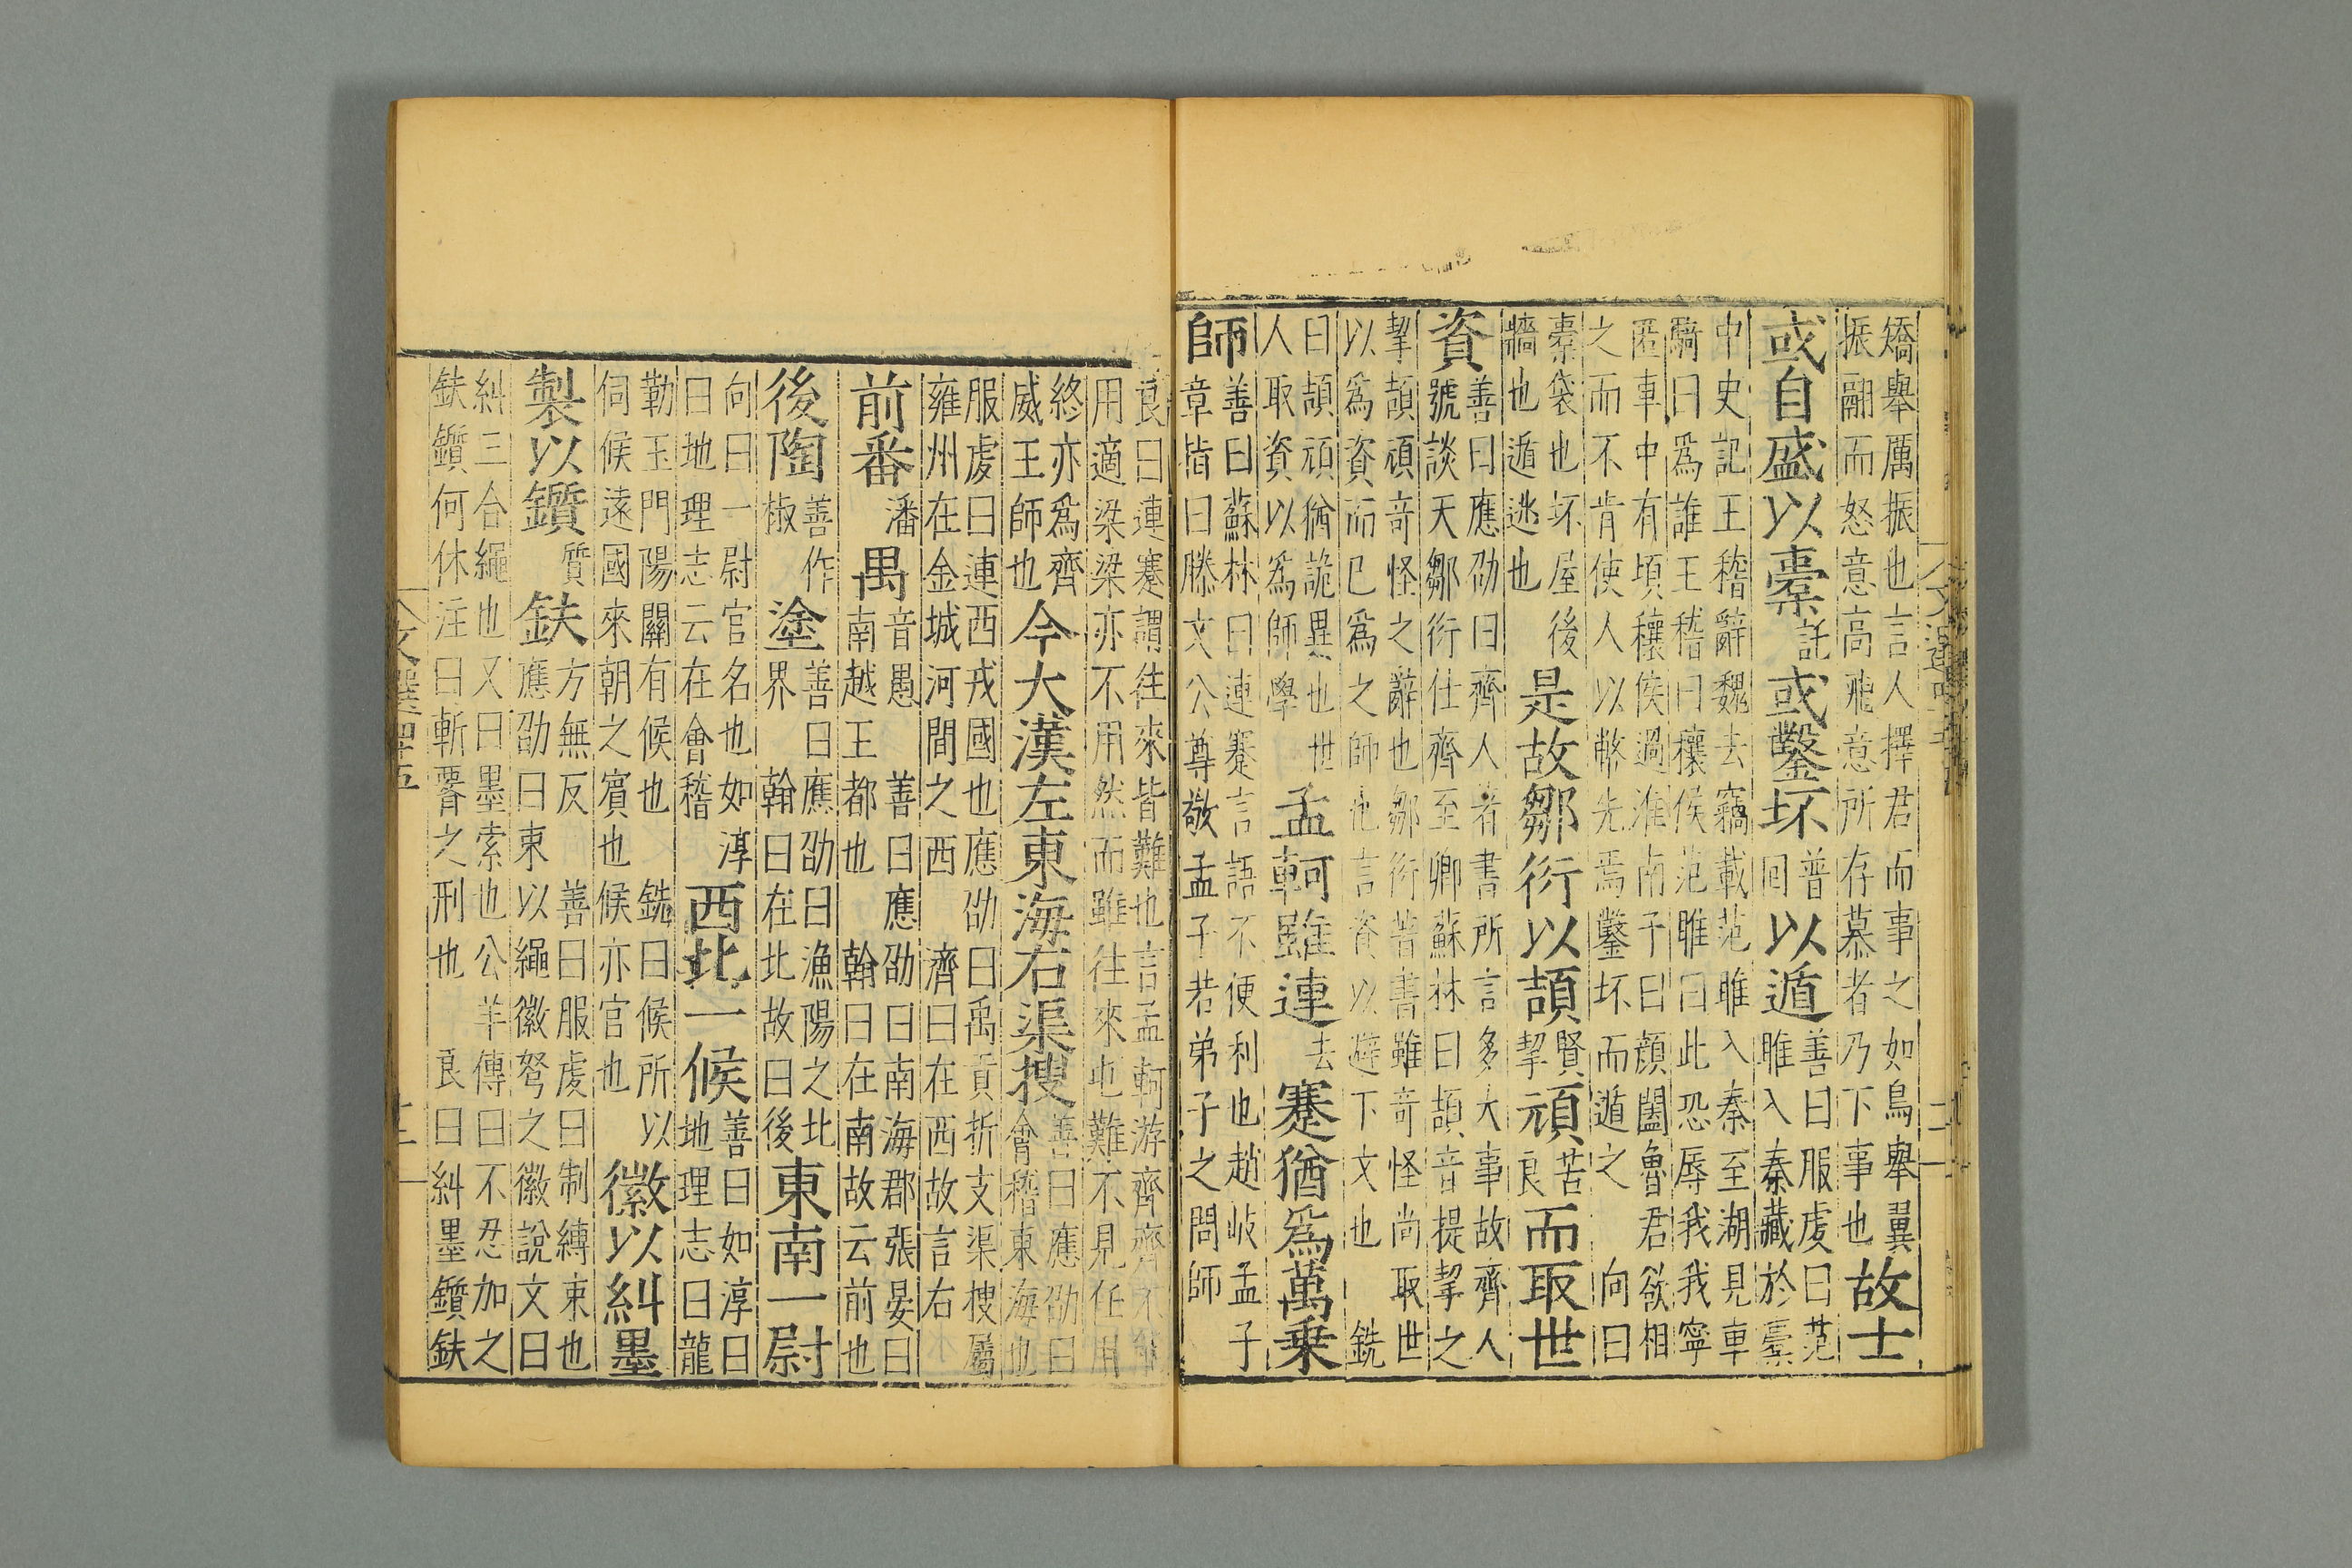 矯舉厲振也言人擇君而事之如鳥舉翼
振翮而怒意高飛意所存慕者乃下事也故士
或自盛以橐託或鑿坏普回以遁善曰服虔曰范
睢入秦藏於橐
中史記王稽辭魏去竊載范睢入秦至湖見車
騎曰為誰王稽曰穰侯范睢曰此恐辱我我寧
匿車中有頃穰侯過淮南子曰顏闔魯君欲相
之而不肯使人以幣先焉鑿坏而遁之向曰
橐袋也坏屋後
牆也遁逃也是故鄒衍以頡賢挈頏苦良而取世
資善曰應劭曰齊人者書所言多大事故齊人
號談天鄒衍仕齊至卿蘇林曰頡音提挈之
挈頡頏奇怪之辭也鄒衍著書雖奇怪尚取世
以為資而已為之師也言資以避下文也銑
曰頡頏猶詭異也世
人取資以為師學孟軻雖連去蹇猶為萬乗
師善曰蘇林曰連蹇言語不便利也趙岐孟子
章皆曰滕文公尊敬孟子若弟子之問師
良曰連蹇謂往來皆難也言孟軻游齊齊不能
用適梁梁亦不用然而雖往來屯難不見任用
終亦為齊
威王師也今大漢左東海右渠搜善曰應劭曰
會稽東海也
服虔曰連西戎國也應劭曰禹貢折支渠搜屬
雍州在金城河間之西濟曰在西故言右
前番潘禺音愚南越王都也善曰應劭曰南海郡張晏曰
翰曰在南故云前也
後陶善作椒塗善曰界應劭曰漁陽之北
翰曰在北故曰後東南一尉
向曰一尉官名也如淳
曰地理志云在會稽西北一候善曰如淳曰
地理志曰龍
勒玉門陽關有候也銑曰候所以
伺候遠國來朝之賓也候亦官也徽以糾墨
製以鑕質鈇方無反善曰服虔曰制縛束也
應劭曰束以繩徽弩之徽說文曰
糾三合繩也又曰墨索也公羊傳曰不忍加之
鈇鑕何休注曰斬罯之刑也良曰糾墨鑕鈇
文選四十五
十二